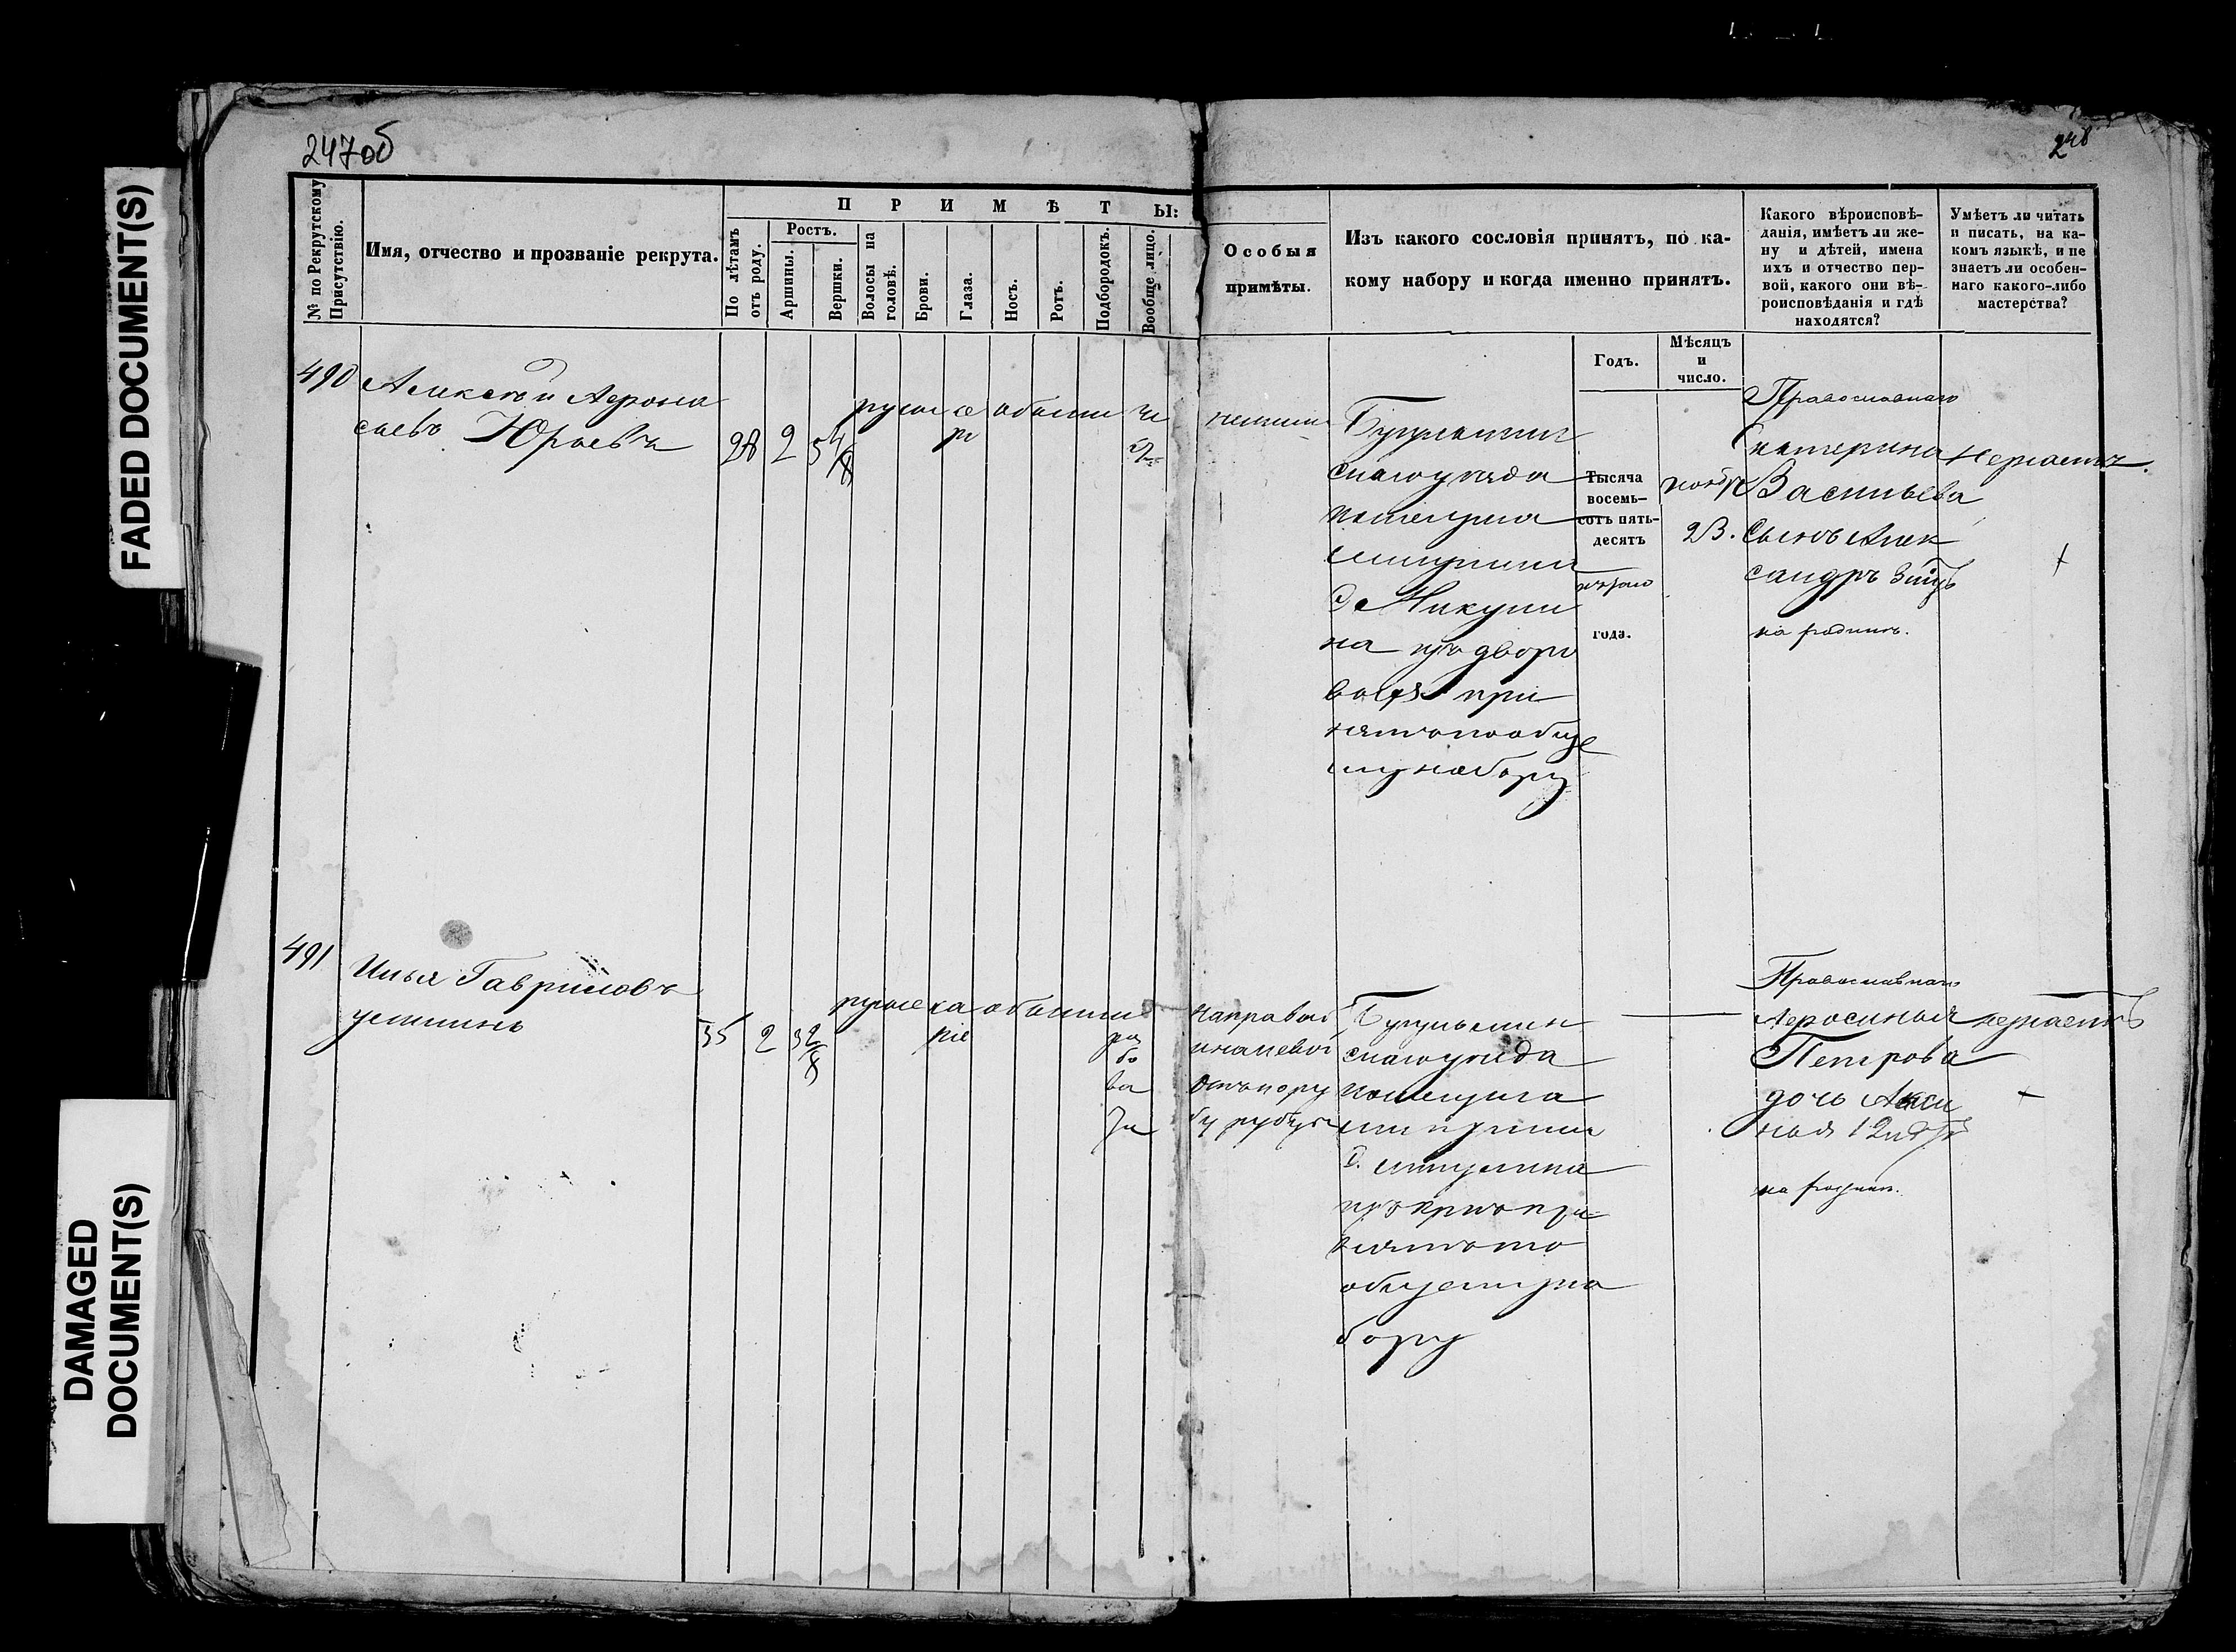 FADED DOCUMENT(S)
DAMAGED
DOCUMENT(S)
247об
248
№ по Рекрутскому
Присутствію.
Имя, отчество и прозваніе рекрута.
П Р И М Ѣ Т Ы:
По лѣтамъ
отъ роду.
Ростъ.
Аршины.
Вершки.
Волосы на
головѣ.
Брови.
Глаза.
Носъ.
Ротъ.
Подбородокъ.
Вообще лицо.
Особыя
примѣты.
Изъ какого сословія принятъ, по ка-
кому набору и когда именно принятъ.
Годъ.
Мѣсяцъ
и
число.
Какого вѣроисповѣ-
данія, имѣетъ ли же-
ну и дѣтей, имена
ихъ и отчество пер-
вой, какого они вѣ-
роисповѣданія и гдѣ
находятся?
Умѣетъ ли читать
и писать, на ка-
комъ языкѣ, и не
знаетъ ли особен-
наго какого-либо
мастерства?
490
Алексѣй Афона
сьевъ Юрьевъ
28
2
русые
обыкн
Бугульмин
скаго уѣзда
помещика
на изъ дворо
выхъ при
нятъ по обще
му набору
Тысяча
восемь-
сотъ пять-
десятъ
года.
ноября
23.
Православнаго
Екатерина
Васильева
сынъ Алек
сандръ
на родинѣ.
491
Илья Гавриловъ
35
2
русые
ка
ріе
обыкн
на правой
и на левой
Бугульмин
скаго уезда
помещика
изъ крнъ при
нятъ по
общему на
бору
Православнаго
Афросинья
Петрова
дочь Акси
нья
на родинѣ.